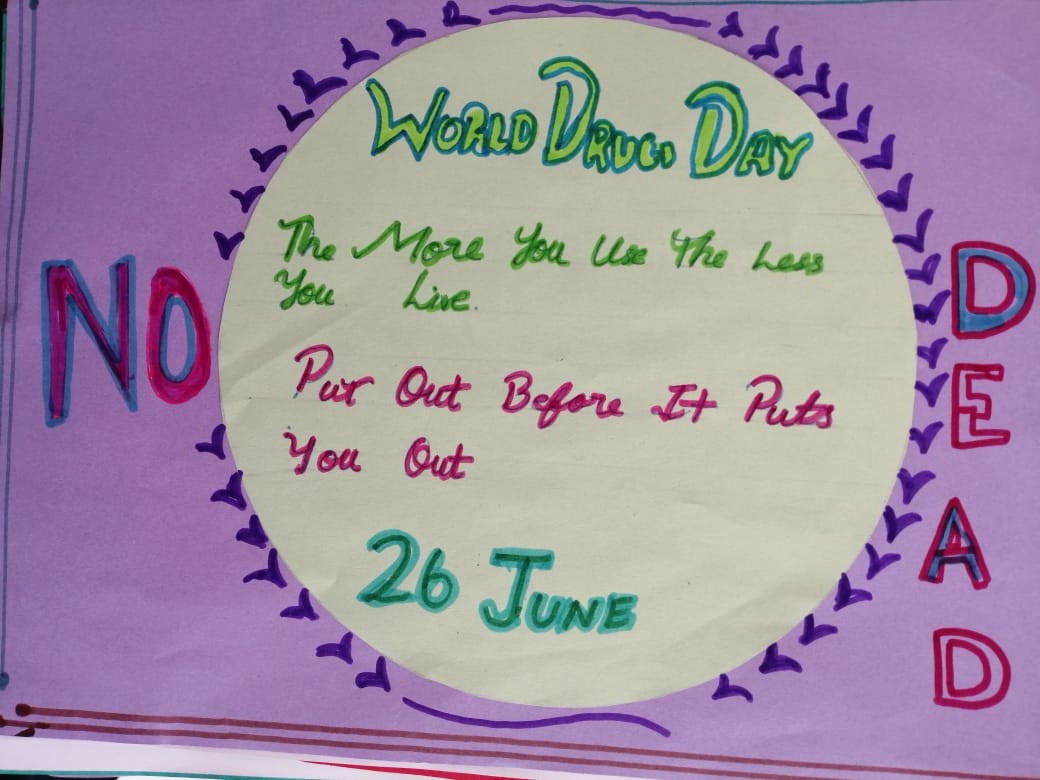 World Drug Day
The More You Use The Less
You Live.
Put Out Before It Puts
You Out
26 June
NO
DEAD